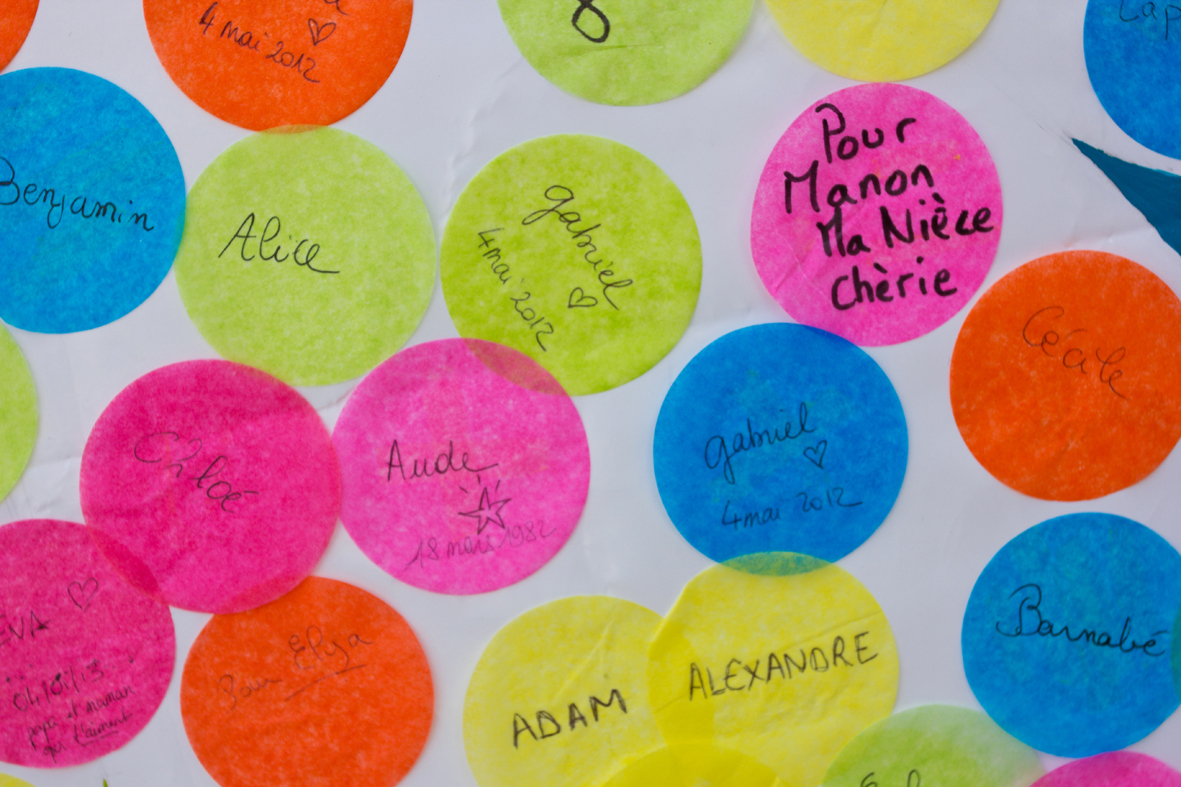 4 mai 2012
8
Lap
Benjamin
Alice
gabriel
4 mai 2012
Pour
Manon
Ma Nièce
chèrie
Cécile
Chloé
Aude
18 mars 1982
gabriel
4 mai 2012
EVA
04/01/13
papa et maman
qui t'aiment
Pour Elya
ADAM
ALEXANDRE
Barnabé